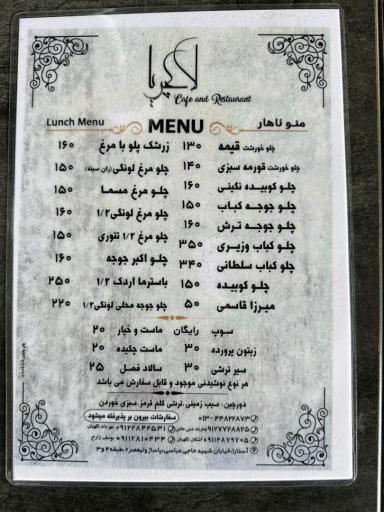 لاکچریا
Cafe and Restaurant
Lunch Menu
MENU
منو ناهار
چلو خورشت قیمه ۱۳۰
چلو خورشت قورمه سبزی ۱۴۰
چلو کوبیده نگینی ۱۶۰
چلو جوجه کباب ۱۵۰
چلو جوجه ترش ۱۶۰
چلو کباب وزیری ۳۵۰
چلو کباب سلطانی ۳۴۰
چلو کوبیده ۱۵۰
میرزا قاسمی ۵۰
زرشک پلو با مرغ ۱۶۰
چلو مرغ لونگی(ران سینه) ۱۵۰
چلو مرغ مسما ۱۵۰
چلو مرغ لونگی ۱/۲ ۱۶۰
چلو مرغ ۱/۲ تنوری ۱۵۰
چلو اکبر جوجه ۱۶۰
باسترما اردک ۱/۲ ۲۵۰
چلو جوجه محلی لونگی۱/۲ ۲۲۰
سوپ رایگان
زیتون پرورده ۳۰
سیر ترشی ۳۰
ماست و خیار ۲۰
ماست چکیده ۲۰
سالاد فصل ۲۵
هر نوع نوشیدنی موجود و قابل سفارش می باشد
دورچین: سیب زمینی،ترشی کلم قرمز،سبزی خوردن
سفارشات بیرون بر پذیرفته میشود
۰۱۳-۴۴۸۲۲۸۷۳
۰۹۱۲۷۷۲۸۸۲۵
۰۹۱۲۲۸۴۲۵۳۱ مهرداد نگهبان
۰۹۱۱۲۸۷۹۷۰۵ اشکان نگهبان
۰۹۱۱۲۸۱۰۴۳۴ یوسف زارع
آستارا،خیابان شهید حاجی عباسی،پاساژ ولیعصر۲،طبقه ۳و۴